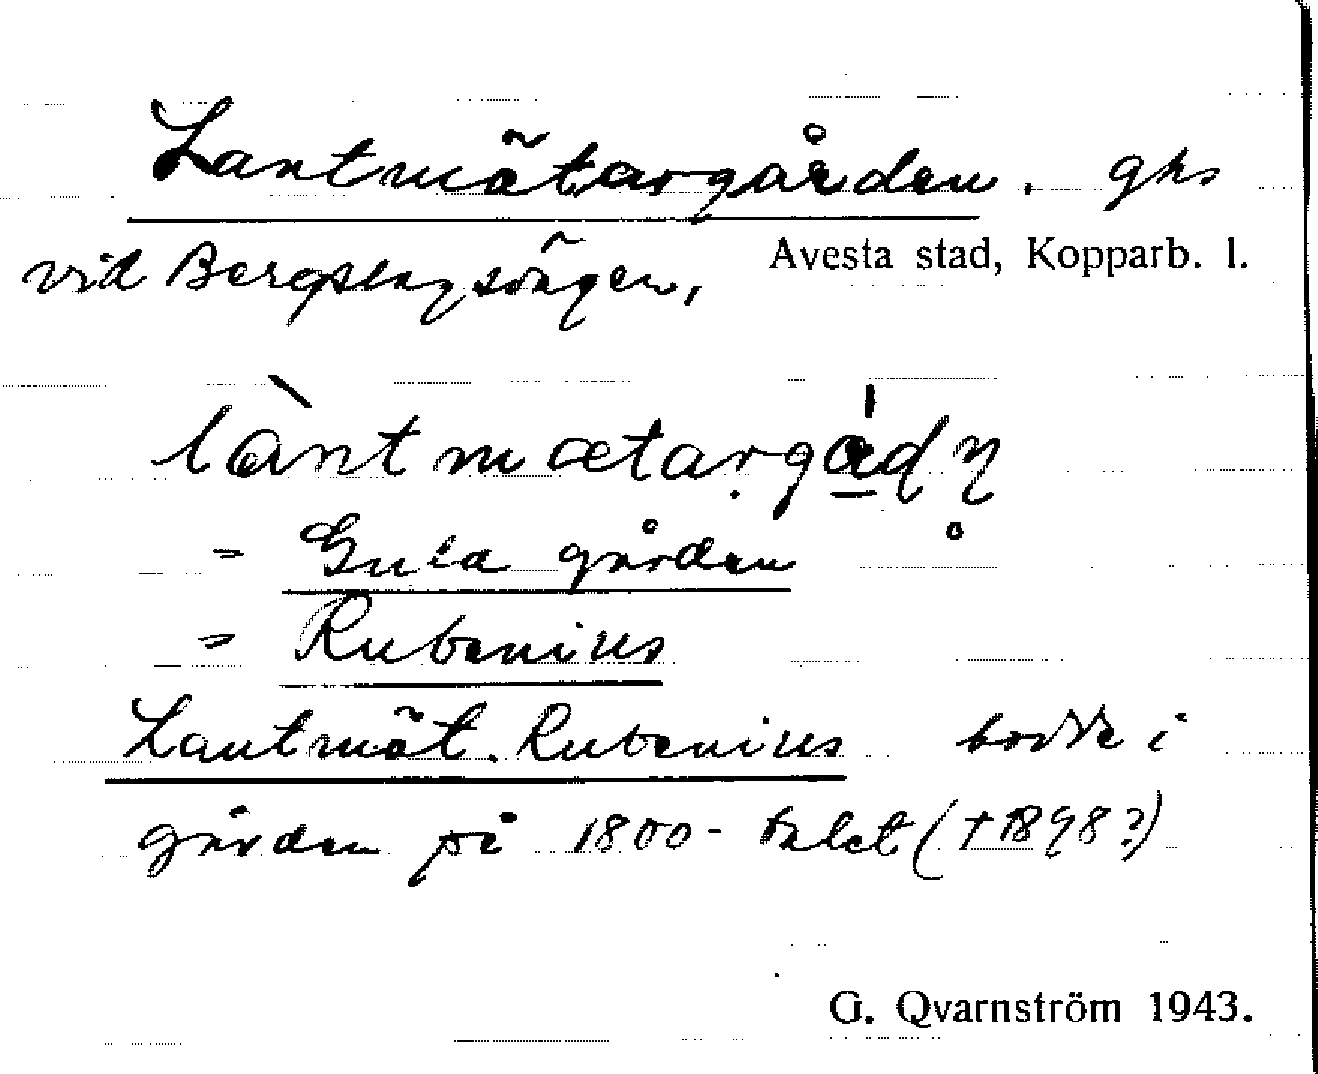 Lantmätargården. ghs
Avesta stad, Kopparb. l.
vid Bergslagsvägen,
làntmætarga̱dn̥
= Gula gården
= Rubenius
Lantmät. Rubenius bodde i
gården på 1800-talet (†1898?)
G. Qvarnström 1943.